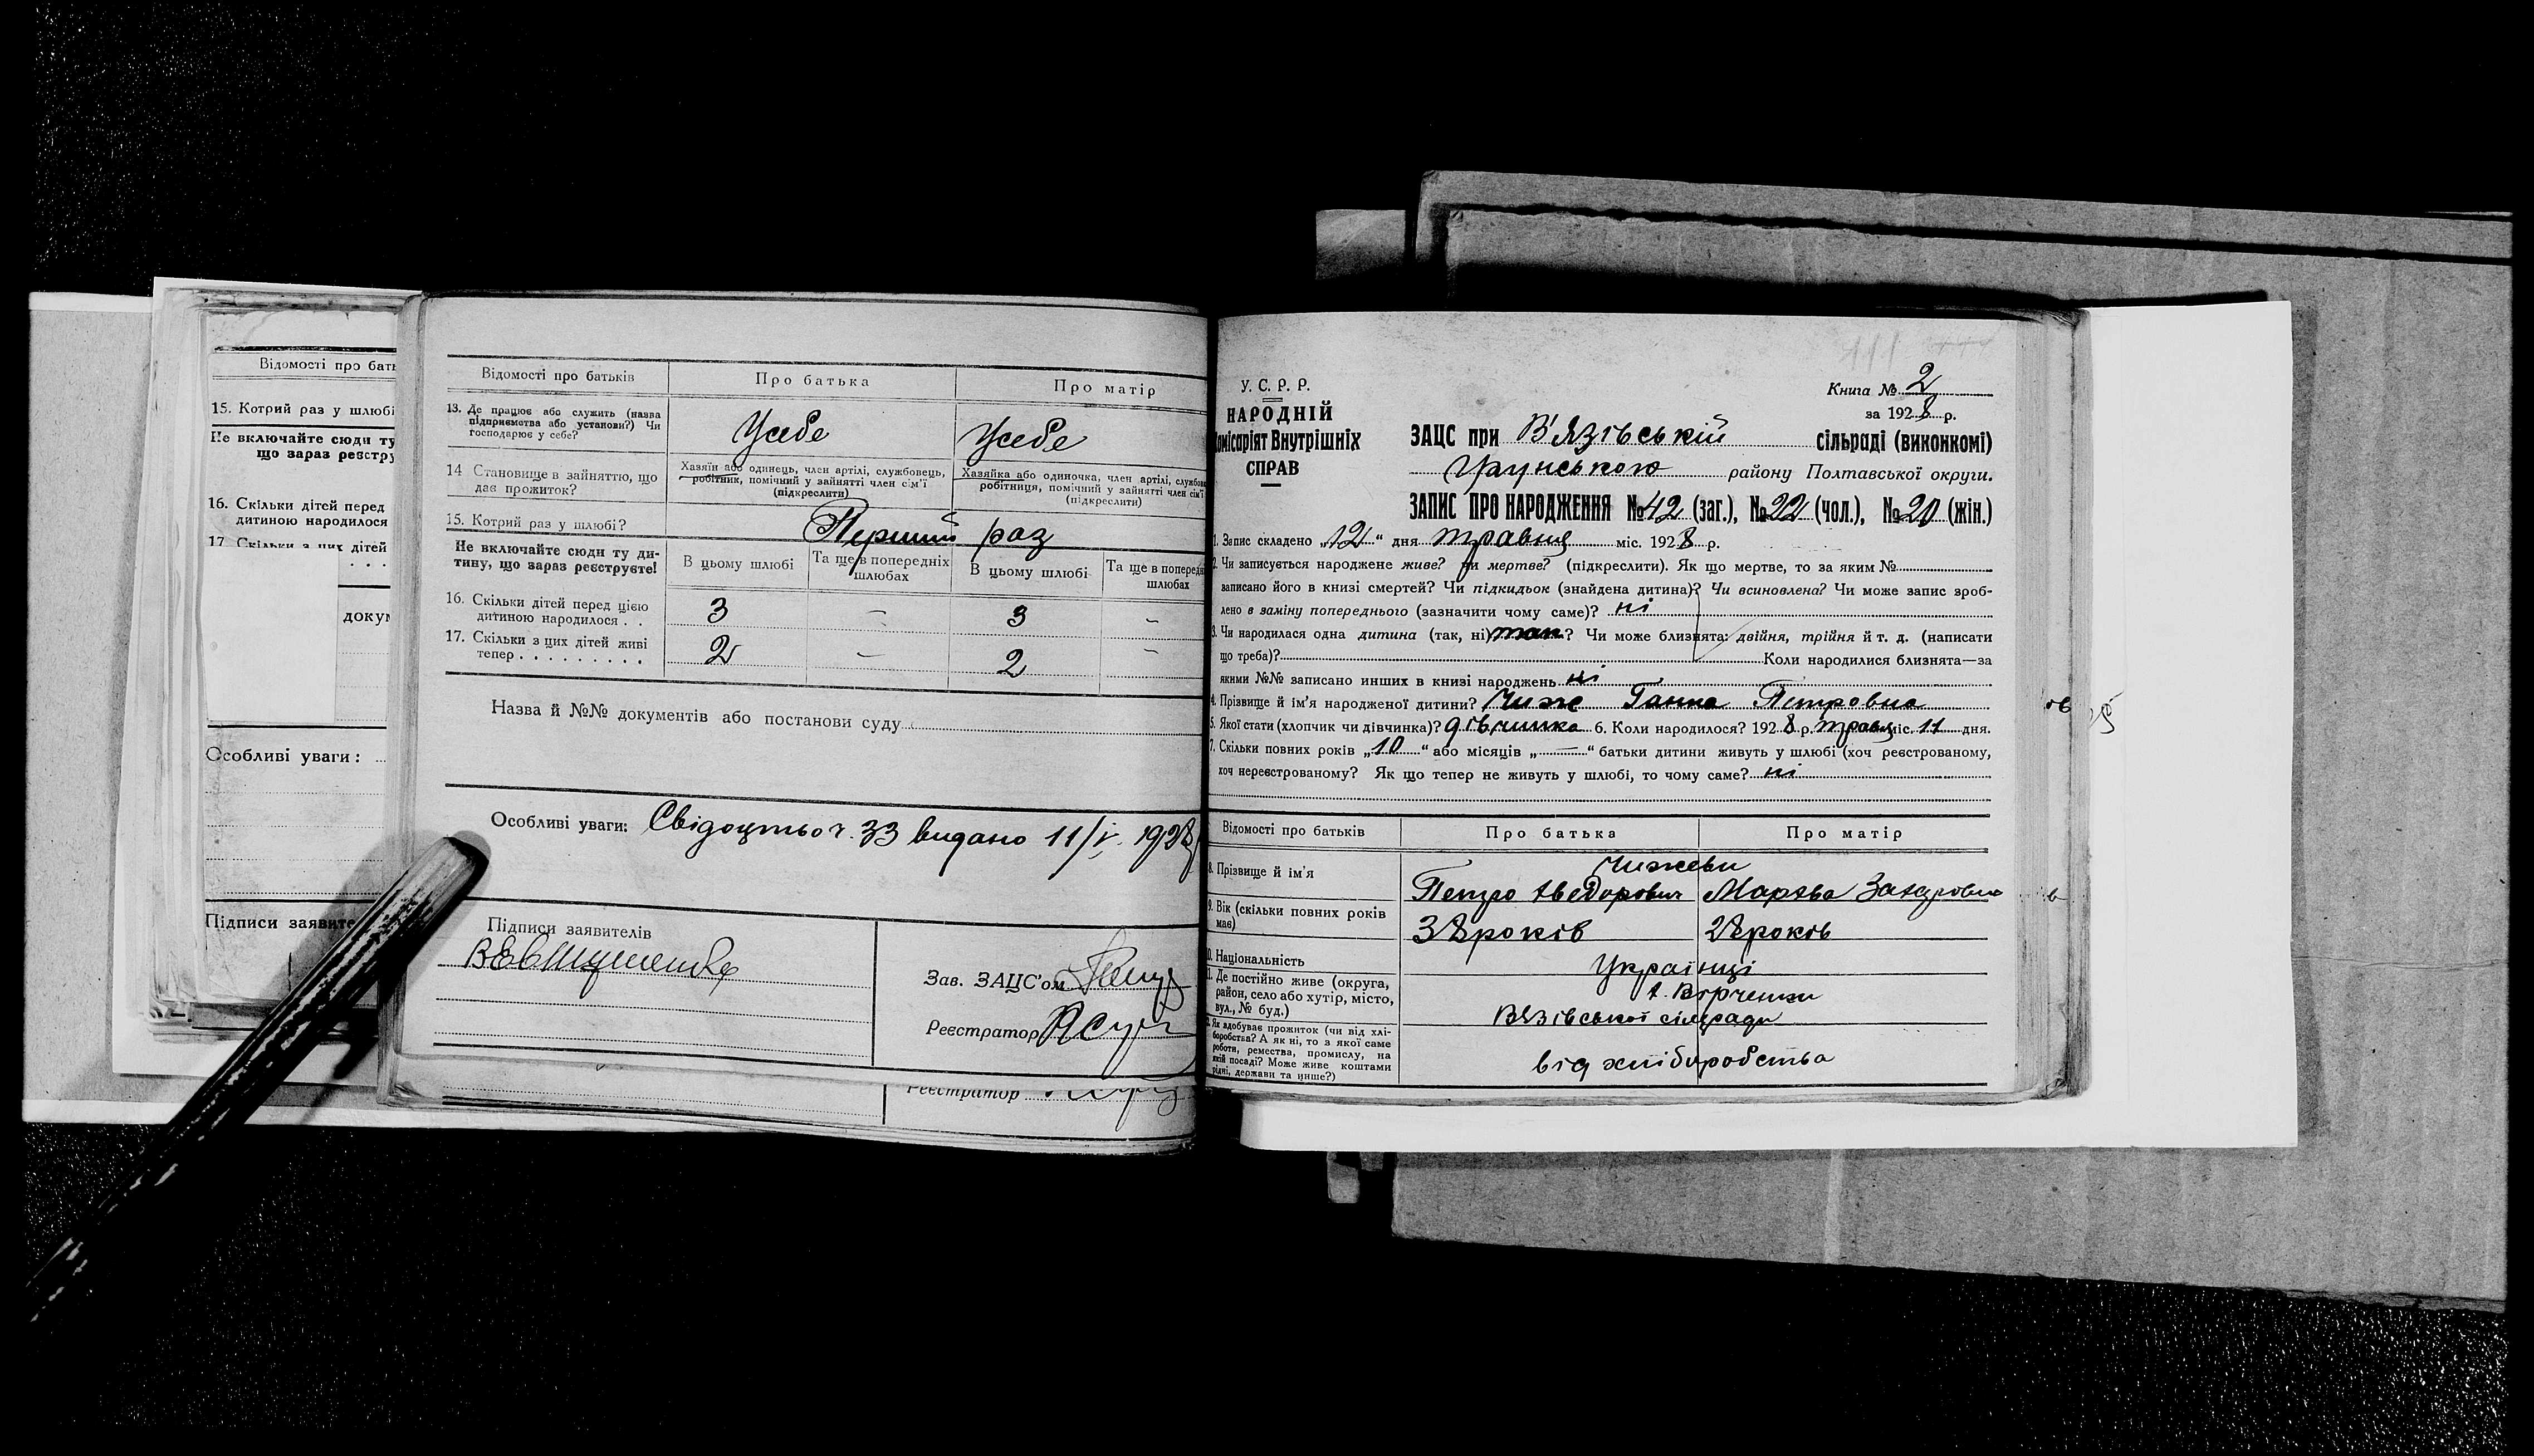 Відомості про бать
15. Котрий раз у шлюбі
Не включайте сюди ту
що зараз реєстру
16. Скільки дітей перед
дитиною народилося
17. Скільки з цих дітей
. . .
докум
Особливі уваги:
Підписи заявите
Відомості про батьків
Про батька
Про матір
13. Де працює або служить (назва
підприємства або установи?) Чи
господарює у себе?
Усебе
Усебе
14 Становище в зайняттю, що
дає прожиток?
Хазяїн або одинець, член артілі, службовець,
робітник, помічний у зайнятті член сім'ї
(підкреслити)
Хазяйка або одиночка, член артілі, службов
робітниця, помічний у зайнятті член сім'ї
(підкреслити)
15. Котрий раз у шлюбі?
Перший раз
Не включайте сюди ту ди-
тину, що зараз реєструєте!
В цьому шлюбі
Та ще в попередніх
шлюбах
В цьому шлюбі
Та ще в поперед
шлюбах
16. Скільки дітей перед цією
дитиною народилося . .
3 – 3 –
17. Скільки з цих дітей живі
тепер . . . . . . . . . .
2 – 2 –
Назва й №№ документів або постанови суду
Особливі уваги: Свідоцтво ч. 33 видано 11/V. 1928
Підписи заявителів
Зав. ЗАЦС'ом
Реєстратор
Реєстратор
У. С. Р. Р.
НАРОДНІЙ
Комісаріят Внутрішніх
СПРАВ
Книга № 2
за 1928 р.
ЗАЦС при В'язівській сільраді (виконкомі)
району Полтавської округи.
ЗАПИС ПРО НАРОДЖЕННЯ № 42 (заг.), № 22 (чол.), № 20 (жін.)
1. Запис складено „12“ дня травня міс. 1928 р.
2. Чи записується народжене живе? чи мертве? (підкреслити). Як що мертве, то за яким №
записано його в книзі смертей? Чи підкидьок (знайдена дитина)? Чи всиновлена? Чи може запис зроб-
лено в заміну попереднього (зазначити чому саме)? ні
3. Чи народилася одна дитина (так, ні) так? Чи може близнята: двійня, трійня й т. д. (написати
що треба)? Коли народилися близнята—за
якими №№ записано инших в книзі народжень ні
4. Прізвище й ім'я народженої дитини? Чиже Ганна Петровна
5. Якої стати (хлопчик чи дівчинка)? дівчинка 6. Коли народилося? 1928 р. травня міс. 11 дня.
7. Скільки повних років „10“ або місяців „—“ батьки дитини живуть у шлюбі (хоч реєстрованому,
хоч нереєстрованому? Як що тепер не живуть у шлюбі, то чому саме? ні
Відомості про батьків
Про батька
Про матір
8. Прізвище й ім'я
Чижеви
Петро Хведорович
Марфа Захаровна
9. Вік (скільки повних років
має)
38 років
28 років
10. Національність
Українці
11. Де постійно живе (округа,
район, село або хутір, місто,
вул., № буд.)
Вязівської сільради
12. Як здобуває прожиток (чи від хлі-
боробства? А як ні, то з якої саме
роботи, ремества, промислу, на
якій посаді? Може живе коштами
рідні, держави та инше?)
від хліборобства